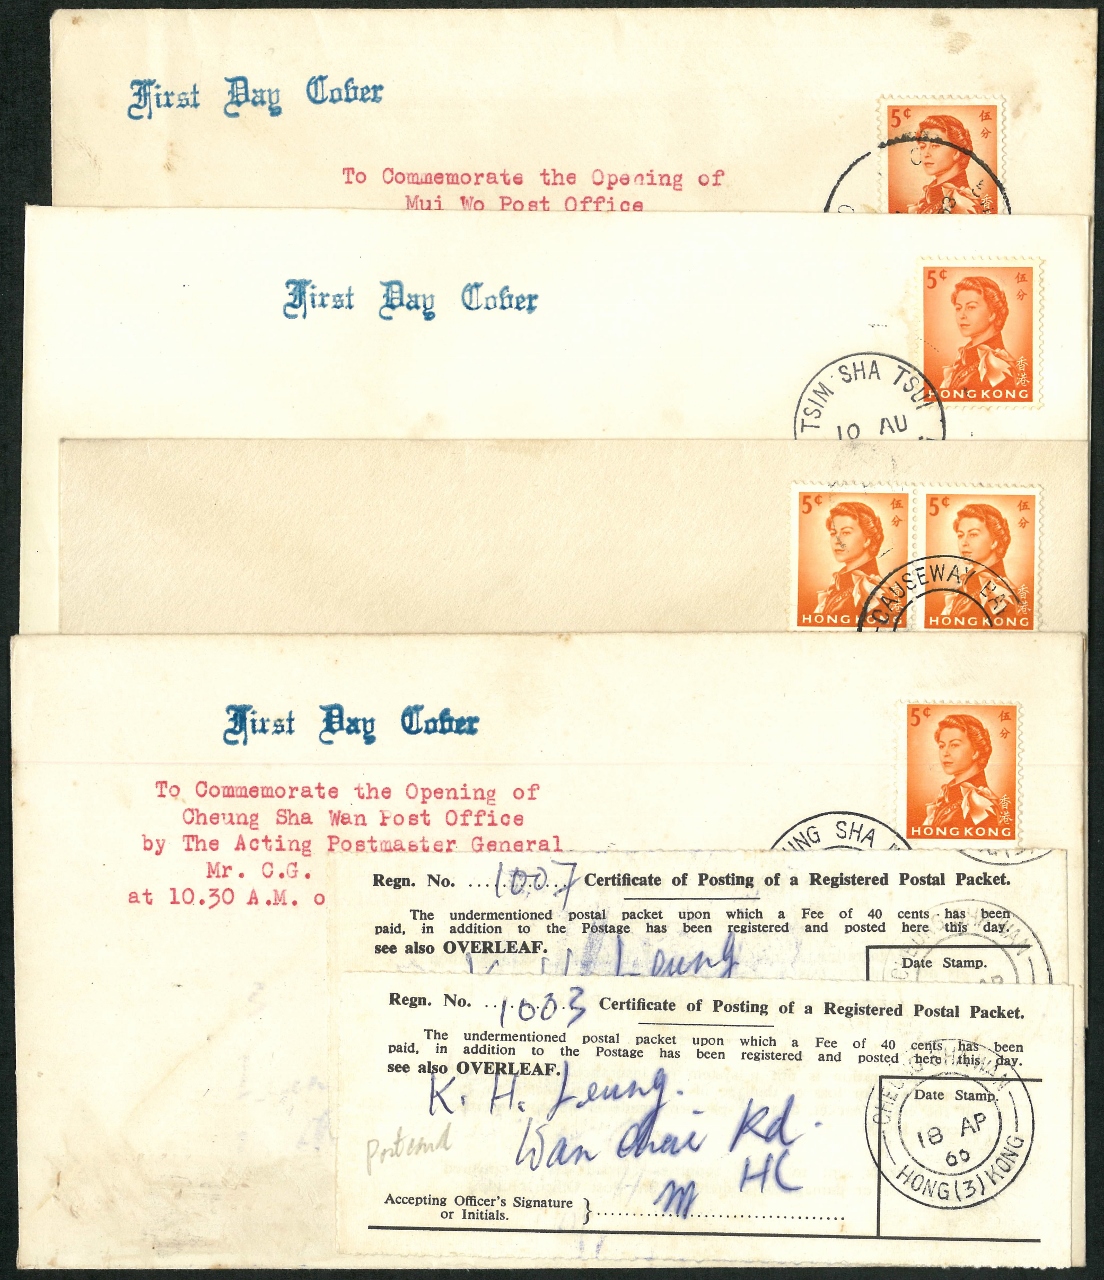 First Day Cover
5¢
伍分
To Commemorate the Opening of
Mui Wo Post Office
香
First Day Cover
5¢
伍分
香港
HONG KONG
TSIM SHA TSUI
10 AU
5¢
伍分
5¢
伍分
香港
HONG KONG
HONG KONG
CAUSEWAY BAY
First Day Cover
5¢
伍分
香港
HONG KONG
To Commemorate the Opening of
Cheung Sha Wan Post Office
by The Acting Postmaster General
Mr. C.G.
at 10.30 A.M. o
UNG SHA
Regn. No. ....1007 Certificate of Posting of a Registered Postal Packet.
The undermentioned postal packet upon which a Fee of 40 cents has been
paid, in addition to the Postage has been registered and posted here this day.
see also OVERLEAF.
Leung
Date Stamp.
CHEUNG SHA WAN
AP
Regn. No. ...1003 Certificate of Posting of a Registered Postal Packet.
The undermentioned postal packet upon which a Fee of 40 cents has been
paid, in addition to the Postage has been registered and posted here this day.
see also OVERLEAF.
K. H. Leung.
Postcard
Wan Chai Rd.
HC
Date Stamp.
CHEUNG SHA WAN
18 AP
66
HONG (3) KONG
Accepting Officer's Signature
or Initials.